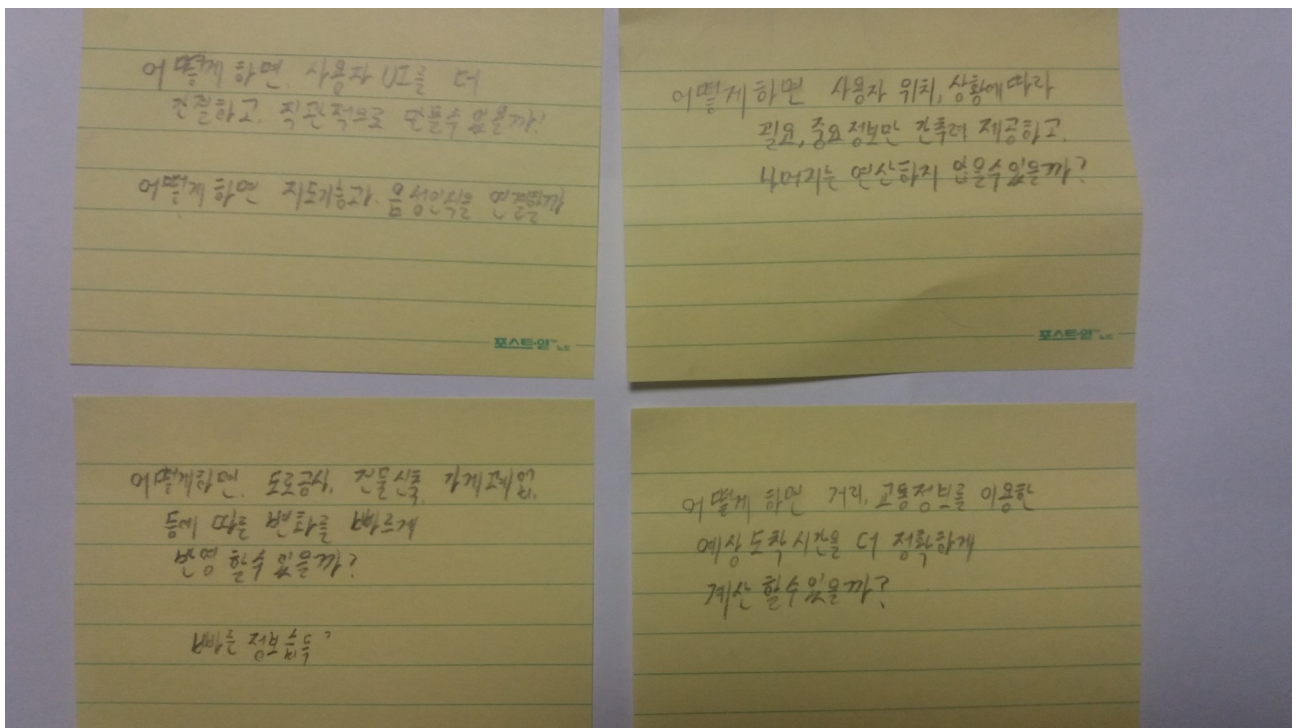 어떻게 하면. 사용자 UI를 더
간결하고. 직관적으로 만들수 있을까?
어떻게 하면 지도기능과. 음성인식을 연결할까
포스트-잇™ 노트
어떻게 하면 사용자 위치, 상황에 따라
필요, 중요 정보만 간추려 제공하고.
나머지는 연산하지 않을수있을까?
포스트-잇™ 노트
어떻게하면. 도로공사, 건물신축, 가게폐업,
등에 따른 변화를 빠르게
반영 할수 있을까?
빠른 정보습득?
어떻게 하면 거리, 교통정보를 이용한
예상 도착 시간을 더 정확하게
계산 할수있을까?